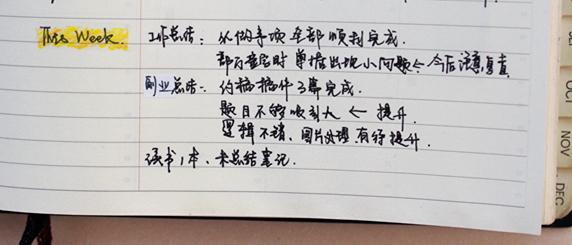 This Week. 工作总结：从做事项全部顺利完成.
部分基层时单据出现小问题←今后注意复查
副业总结：约稿稿件3篇完成.
题目不够吸引人 ← 提升
逻辑不错、图片处理有待提升.
读书1本、未总结笔记.
OCT
NOV
DEC